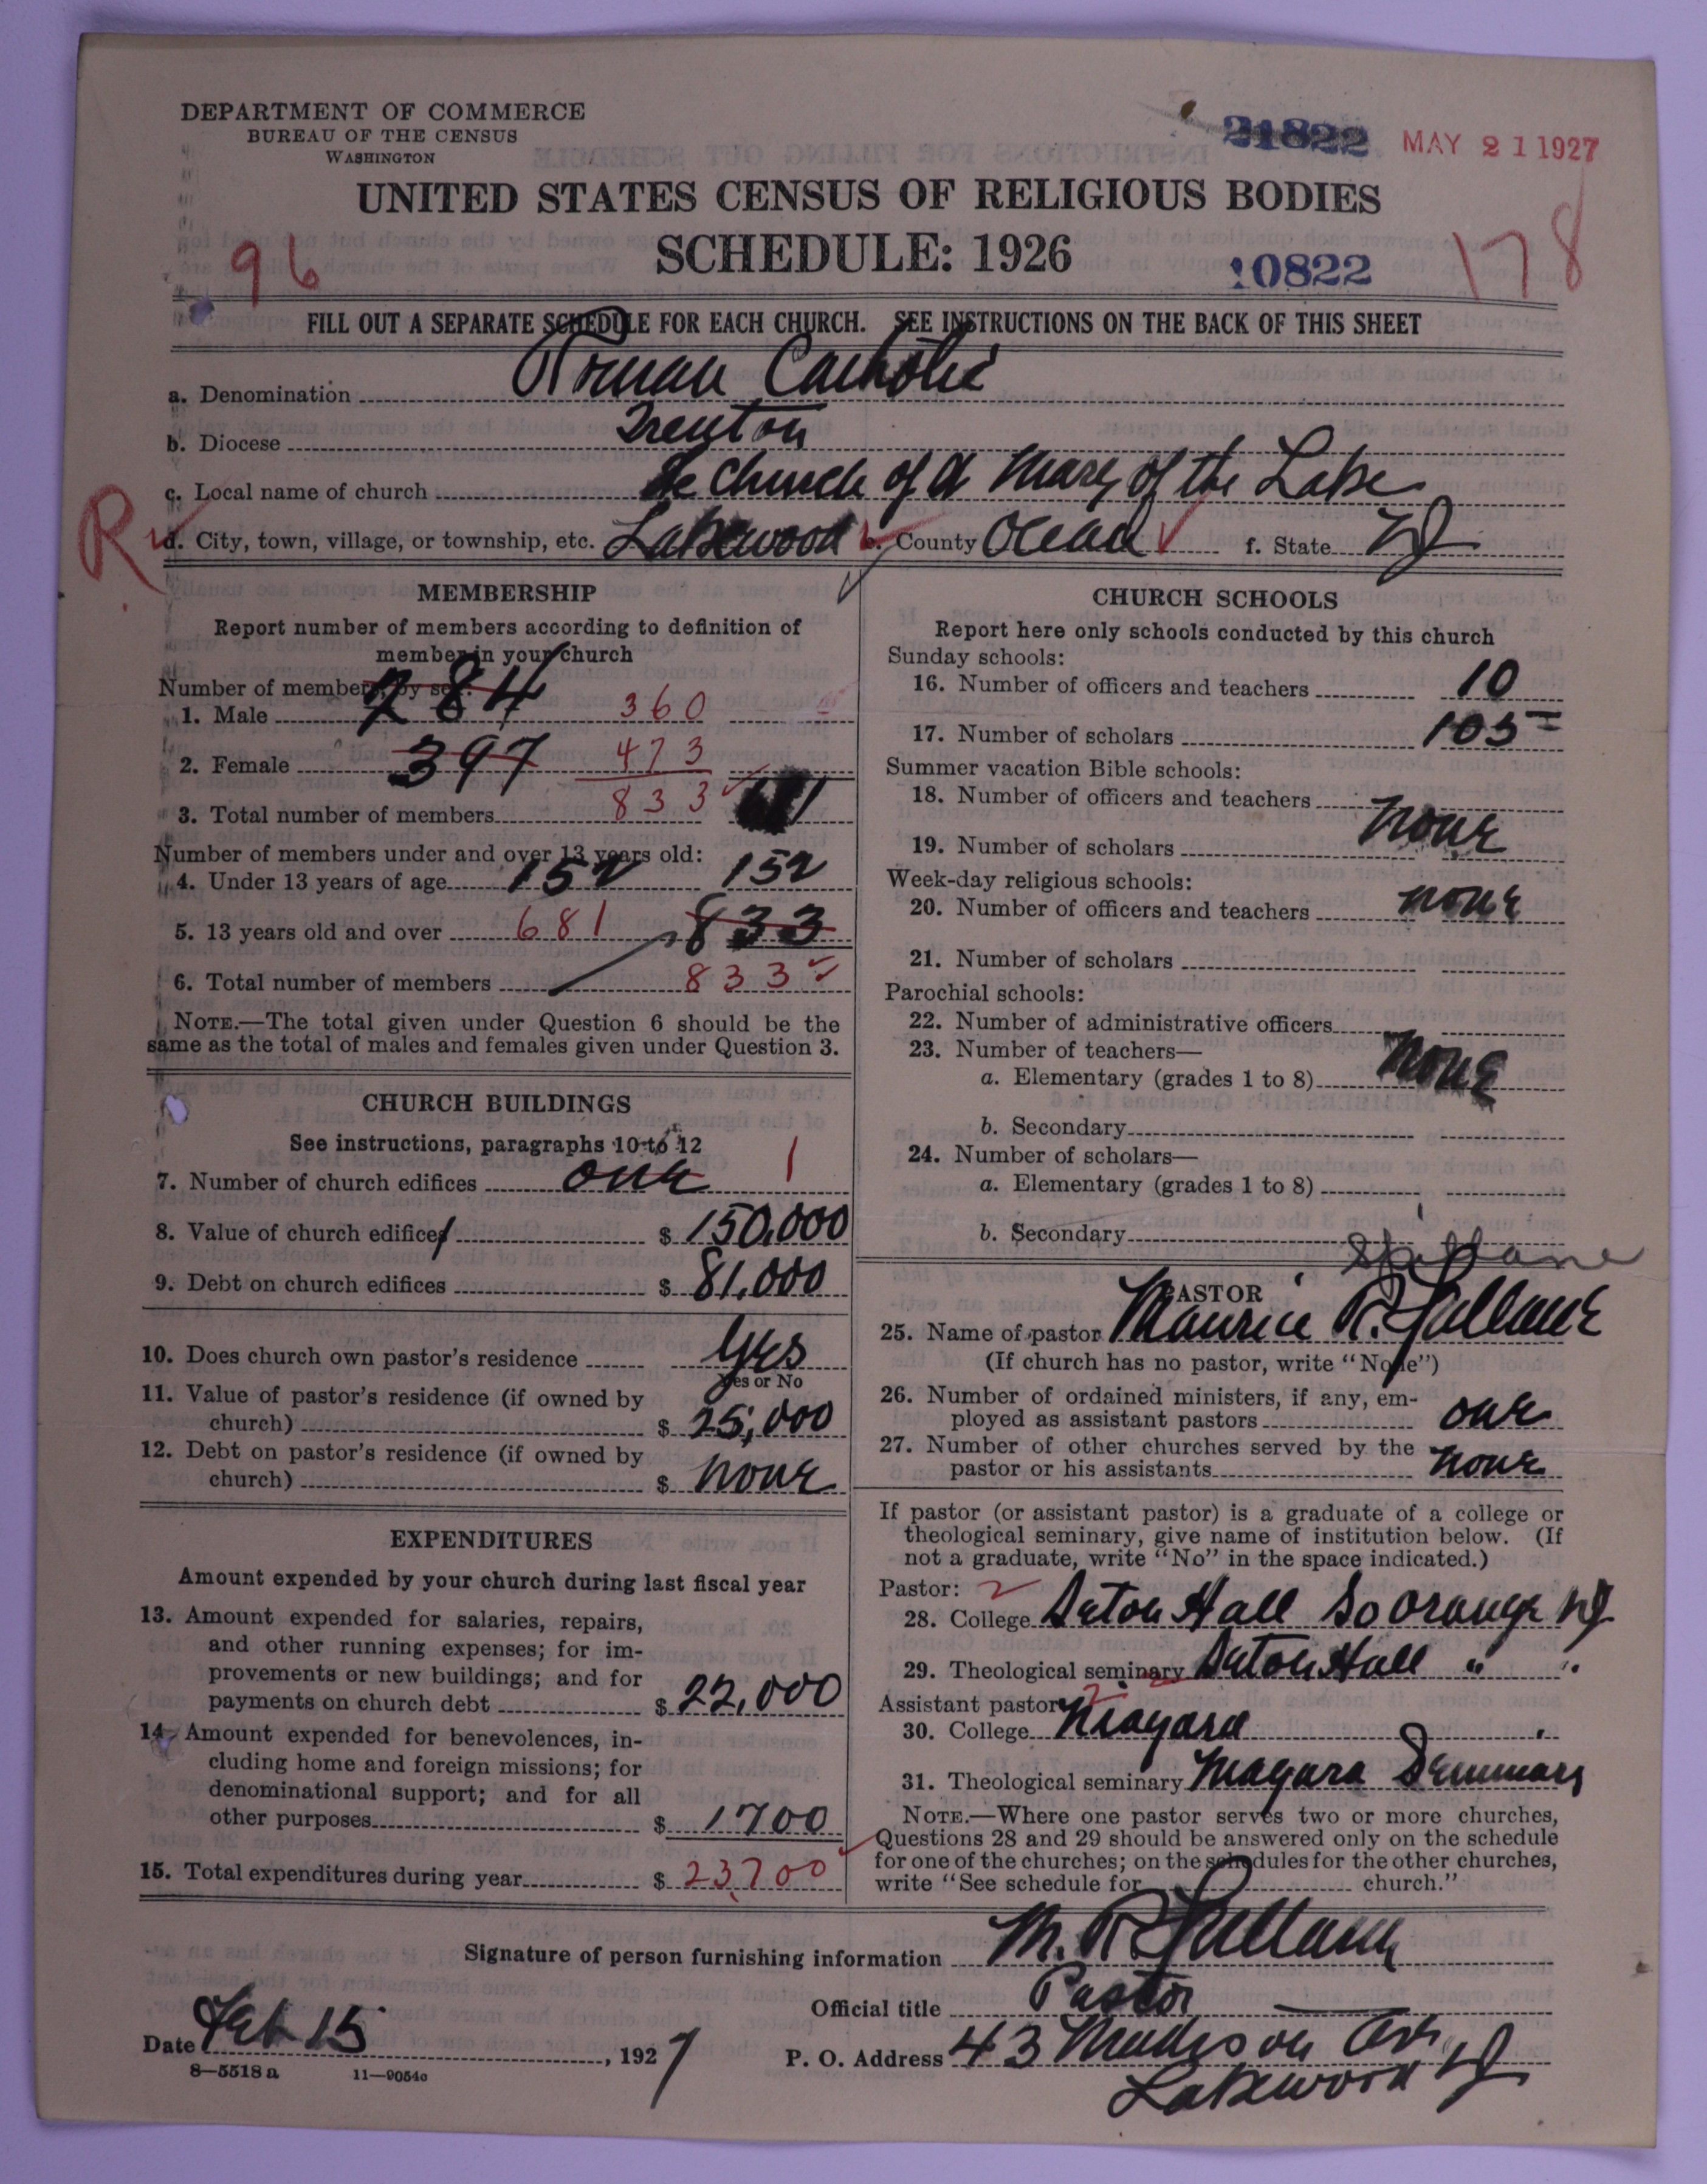 DEPARTMENT OF COMMERCE
BUREAU OF THE CENSUS
WASHINGTON
21822 MAY 21 1927
UNITED STATES CENSUS OF RELIGIOUS BODIES
SCHEDULE: 1926
96 10822 178
FILL OUT A SEPARATE SCHEDULE FOR EACH CHURCH. SEE INSTRUCTIONS ON THE BACK OF THIS SHEET
a. Denomination Roman Catholic
b. Diocese Trenton
c. Local name of church The Church of St Mary of the Lake
R d. City, town, village, or township, etc. Lakewood e. County Ocean f. State NJ
MEMBERSHIP
Report number of members according to definition of
member in your church
Number of members, by sex:
1. Male 284 360
2. Female 397 473
3. Total number of members 833 681
Number of members under and over 13 years old:
4. Under 13 years of age 152 152
5. 13 years old and over 681 833
6. Total number of members 833
NOTE.—The total given under Question 6 should be the
same as the total of males and females given under Question 3.
CHURCH BUILDINGS
See instructions, paragraphs 10 to 12
7. Number of church edifices one 1
8. Value of church edifices $ 150,000
9. Debt on church edifices $ 81,000
10. Does church own pastor's residence Yes
Yes or No
11. Value of pastor's residence (if owned by
church) $ 25,000
12. Debt on pastor's residence (if owned by
church) $ none
EXPENDITURES
Amount expended by your church during last fiscal year
13. Amount expended for salaries, repairs,
and other running expenses; for im-
provements or new buildings; and for
payments on church debt $ 22,000
14. Amount expended for benevolences, in-
cluding home and foreign missions; for
denominational support; and for all
other purposes $ 1700
15. Total expenditures during year $ 23,700
CHURCH SCHOOLS
Report here only schools conducted by this church
Sunday schools:
16. Number of officers and teachers 10
17. Number of scholars 105
Summer vacation Bible schools:
18. Number of officers and teachers
none
19. Number of scholars
Week-day religious schools:
20. Number of officers and teachers none
21. Number of scholars
Parochial schools:
22. Number of administrative officers
23. Number of teachers—
none
a. Elementary (grades 1 to 8)
b. Secondary
24. Number of scholars—
a. Elementary (grades 1 to 8)
b. Secondary
Spillane
PASTOR
25. Name of pastor Maurice R. Spillane
(If church has no pastor, write "None")
26. Number of ordained ministers, if any, em-
ployed as assistant pastors one
27. Number of other churches served by the
pastor or his assistants none
If pastor (or assistant pastor) is a graduate of a college or
theological seminary, give name of institution below. (If
not a graduate, write "No" in the space indicated.)
Pastor: 2
28. College Seton Hall So Orange NJ
29. Theological seminary Seton Hall " "
Assistant pastor: 2
30. College Niagara
31. Theological seminary Niagara Seminary
NOTE.—Where one pastor serves two or more churches,
Questions 28 and 29 should be answered only on the schedule
for one of the churches; on the schedules for the other churches,
write "See schedule for church."
Signature of person furnishing information M. R. Spillane
Official title Pastor
Date Feb 15, 1927 P. O. Address 43 Madison Ave
Lakewood NJ
8—5518a 11—9054c